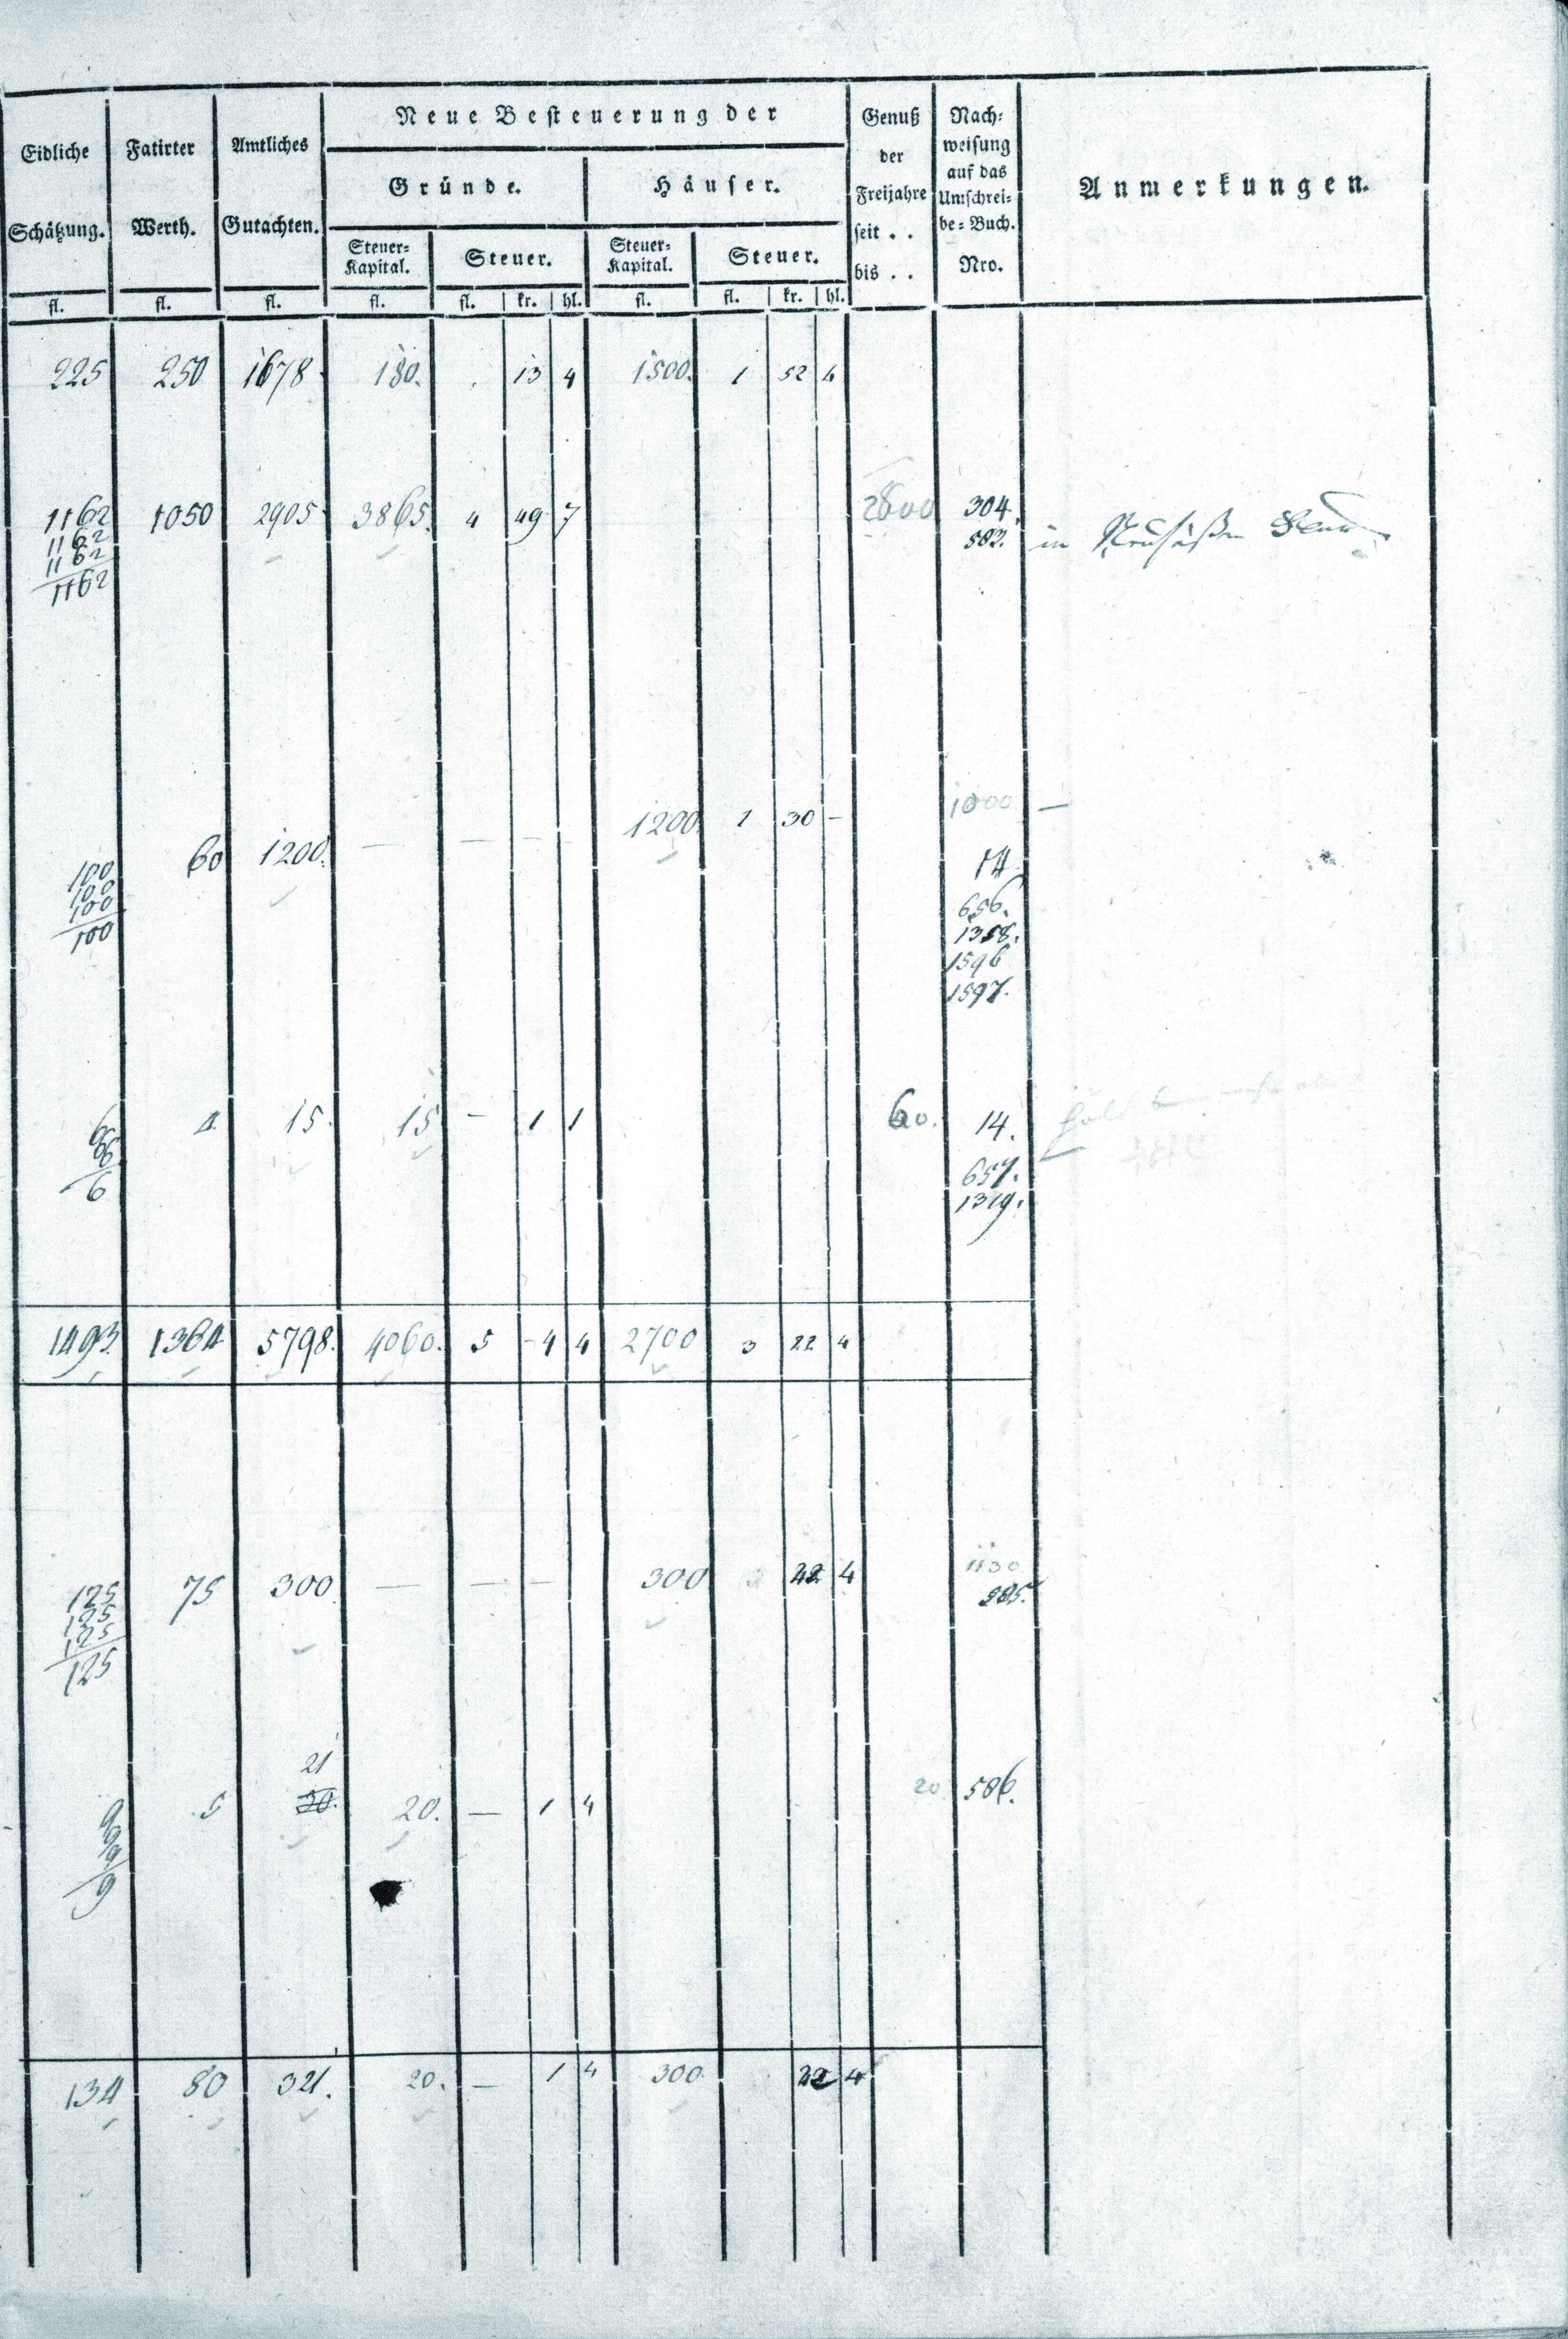 Eidliche Schätzung. Fatirter Werth. Amtliches Gutachten. Neue Besteuerung der Genuß der Freijahre seit . . bis . . Nach- weisung auf das Umschrei- be-Buch. Nro. Anmerkungen.
Gründe. Häuser.
Steuer-Kapital. Steuer. Steuer-Kapital. Steuer.
fl. fl. fl. fl. fl. kr. hl. fl. fl. kr. hl.
225 250 1678 180. . 13 4 1500. 1 52 4
1162 1050 2905 3865. 4 49 7 2800 304.
1162 582. in
1162
1162
1200. 1 30 - 1000 —
60 1200. — — —
100 14
100 656.
100 1358.
100 1596
1597.
6 4 15. 15 - 1 1 60. 14.
6
6 657.
6 1319.
1493. 1364 5798. 4060. 5 - 4 4 2700 3 22 4
125 75 300 — — — 300 22 4 1130
125 585.
125
125
21
9 5 30. 20. — 1 4 20 586.
9
9
9
134 80 321. 20. — 1 4 300. 22 4